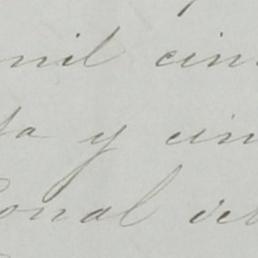 mil cin
ta y cin
onal del